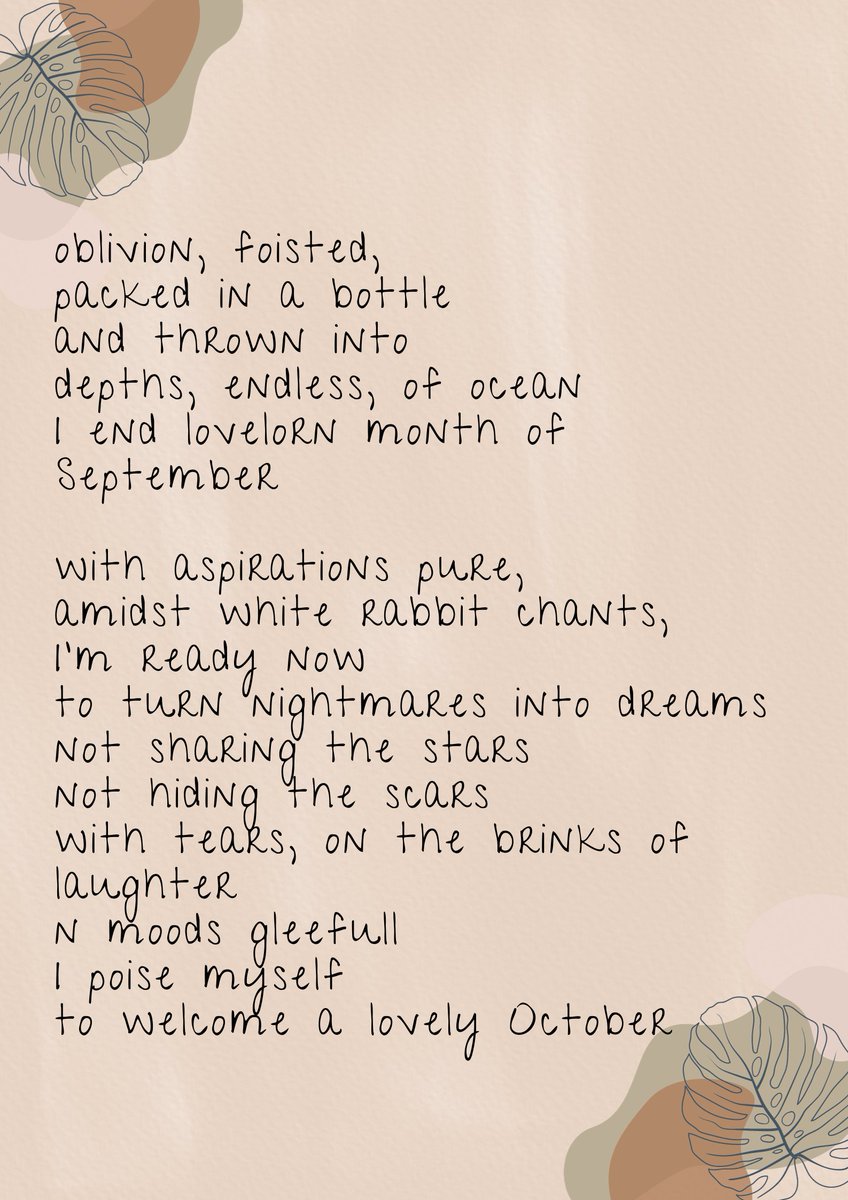 oblivion, foisted,
packed in a bottle
and thrown into
depths, endless, of ocean
I end lovelorn month of
September
with aspirations pure,
amidst white rabbit chants,
I'm ready now
to turn nightmares into dreams
not sharing the stars
not hiding the scars
with tears, on the brinks of
laughter
n moods gleefull
I poise myself
to welcome a lovely October